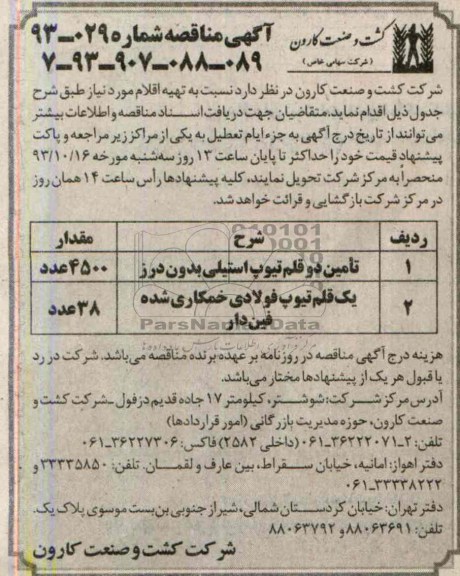 کشت و صنعت کارون
(شرکت سهامی خاص)
آگهی مناقصه شماره ۰۲۹-۹۳
۰۸۹-۰۸۸-۹۰۷-۹۳-۷
شرکت کشت و صنعت کارون در نظر دارد نسبت به تهیه اقلام مورد نیاز طبق شرح
جدول ذیل اقدام نماید، متقاضیان جهت دریافت اسناد مناقصه و اطلاعات بیشتر
می‌توانند از تاریخ درج آگهی به جزء ایام تعطیل به یکی از مراکز زیر مراجعه و پاکت
پیشنهاد قیمت خود را حداکثر تا پایان ساعت ۱۳ روز سه‌شنبه مورخه ۹۳/۱۰/۱۶
منحصراً به مرکز شرکت تحویل نمایند، کلیه پیشنهادها رأس ساعت ۱۴ همان روز
در مرکز شرکت بازگشایی و قرائت خواهد شد.
ردیف شرح مقدار
۱ تأمین دو قلم تیوپ استیلی بدون درز ۴۵۰۰عدد
۲ یک قلم تیوپ فولادی خمکاری شده فین‌دار ۳۸عدد
ParsNamadData
هزینه درج آگهی مناقصه در روزنامه بر عهده برنده مناقصه می‌باشد. شرکت در رد
یا قبول هر یک از پیشنهادها مختار می‌باشد.
آدرس مرکز شرکت: شوشتر، کیلومتر ۱۷ جاده قدیم دزفول-شرکت کشت و
صنعت کارون، حوزه مدیریت بازرگانی (امور قراردادها)
تلفن: ۲-۳۶۲۲۲۰۷۱-۰۶۱ (داخلی ۲۵۸۲) فاکس: ۳۶۲۲۷۳۰۶-۰۶۱
دفتر اهواز: امانیه، خیابان سقراط، بین عارف و لقمان. تلفن: ۳۳۳۳۵۸۵۰ و
۳۳۳۳۸۲۲۲-۰۶۱
دفتر تهران: خیابان کردستان شمالی، شیراز جنوبی بن‌بست موسوی پلاک یک.
تلفن: ۸۸۰۶۳۶۹۱ و ۸۸۰۶۳۷۹۲
شرکت کشت و صنعت کارون